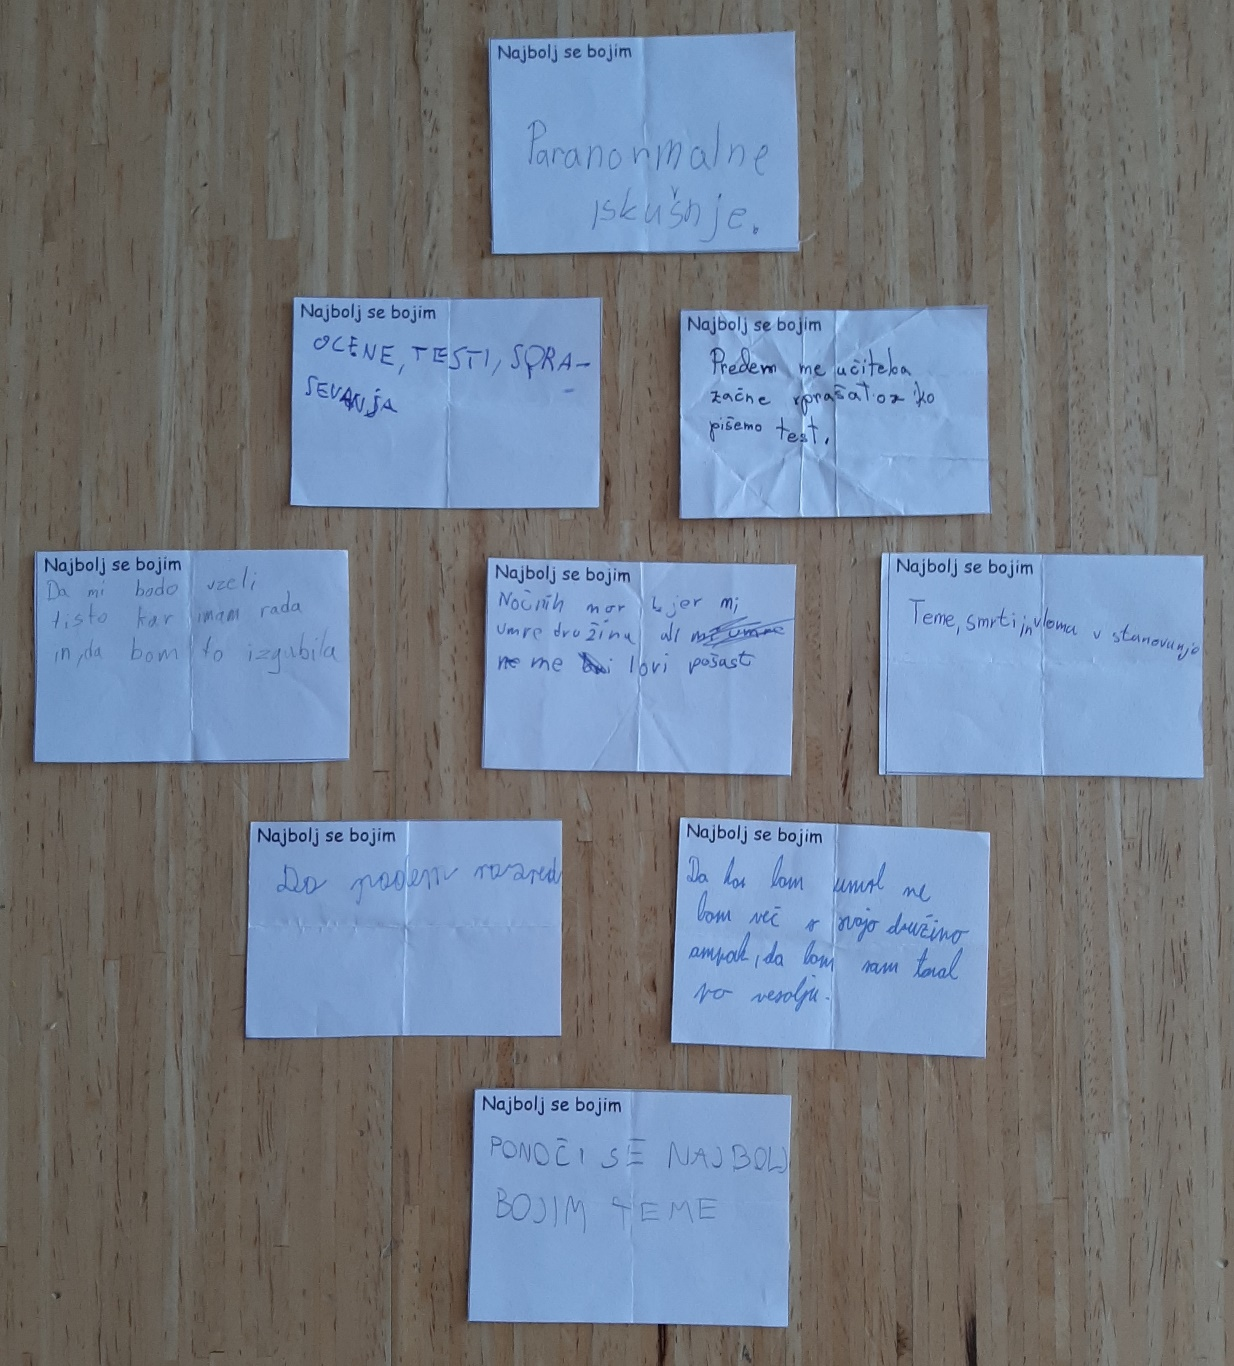 Najbolj se bojim
Paranormalne
iskušnje.
Najbolj se bojim
OCENE, TESTI, SPRA-
SEVANJA
Najbolj se bojim
Predem me učiteba
začne sprašat oz ko
pišemo test.
Najbolj se bojim
Da mi bodo vzeli
tisto kar imam rada
in, da bom to izgubila
Najbolj se bojim
Nočnih mor kjer mi
umre družina ali mi umre
ne me lovi pošast
Najbolj se bojim
Teme, smrti in vloma v stanovanje
Najbolj se bojim
Da padem razred
Najbolj se bojim
Da ko bom umrl ne
bom več s svojo družino
ampak, da bom sam taval
po vesolju.
Najbolj se bojim
PONOČI SE NAJBOLJ
BOJIM TEME